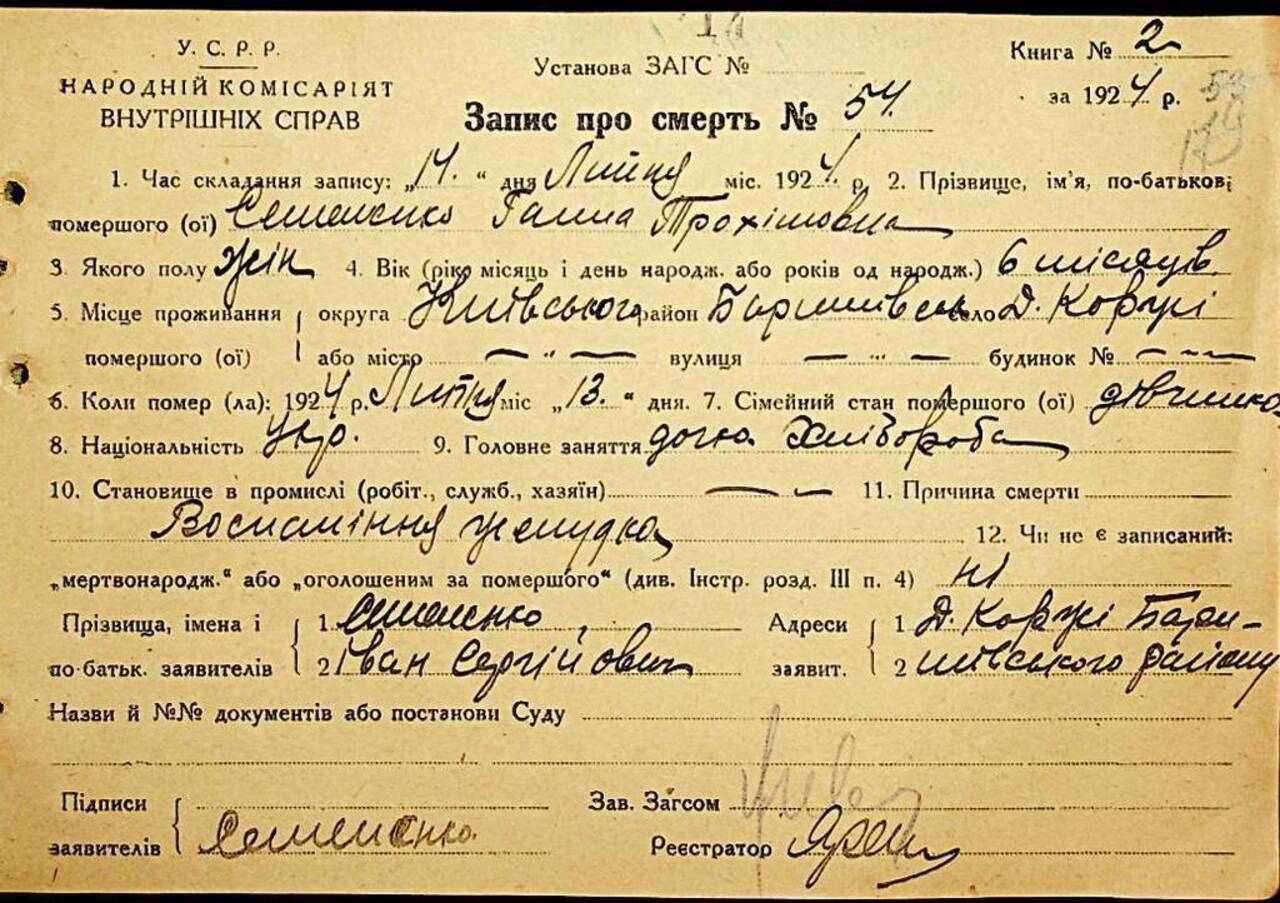 У. С. Р. Р.
НАРОДНІЙ КОМІСАРІЯТ
ВНУТРІШНІХ СПРАВ
Установа ЗАГС №
Запис про смерть № 54.
Книга № 2
за 1924 р.
1. Час складання запису: „14.“ дня Липня міс. 1924 р. 2. Прізвище, ім'я, по-батькові
помершого (ої) Семененко Ганна Трохімовна
3. Якого полу жін 4. Вік (рік, місяць і день народж. або років од народж.) 6 місяців.
5. Місце проживання округа Київського район Баришівськ село Д. Коржі
помершого (ої) або місто — „ — вулиця — „ — будинок № — — —
6. Коли помер (ла): 1924 р. Липня міс „13.“ дня. 7. Сімейний стан помершого (ої) дівчинка
8. Національність Укр. 9. Головне заняття дочка Хлібороба
10. Становище в промислі (робіт., служб., хазяїн) — — 11. Причина смерти
Воспаління желудка 12. Чи не є записаний:
„мертвонародж.“ або „оголошеним за помершого“ (див. Інстр. розд. III п. 4) ні
Прізвища, імена і 1. Семененко, Адреси 1 Д. Коржі Бари-
по-батьк. заявителів 2 Іван Сергійович заявит. 2 шівського району
Назви й №№ документів або постанови Суду
Підписи Зав. Загсом
заявителів Семененко. Реєстратор